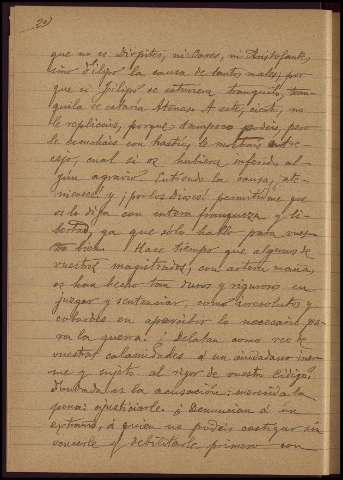 20
que no es Diopites, ni Cares, ni Aristofonte,
sino Filipo la causa de tantos males; por
que si Filipo se estuviera tranquilo, tran-
quila se estaria Atenas. A este, cierto, no
le replicais, porque tampoco podeis, pero
le escuchais con hastio, le mostrais entre
cejo, cual si os hubiera inferido al-
gún agravio. Entiendo la causa, ate-
nienses! y ¡por los Dioses! permitidme que
os lo diga con entera franqueza y li-
bertad, ya que sólo hablo para vues-
tro bien. Hace tiempo que algunos de
vuestros magistrados, con astuta maña,
os han hecho tan duros y rigurosos en
juzgar y sentenciar, como irresolutos y
cobardes en apercibir lo necesario pa-
ra la guerra. ¿Delatan como reo de
vuestras calamidades á un ciudadano iner-
me y sujeto al rigor de vuestro código?
Fundada es la acusación; merecida la
pena: ajusticiarle. ¿Denuncian á un
extraño, á quien no podeis castigar sin
vencerle y debilitarle primero con